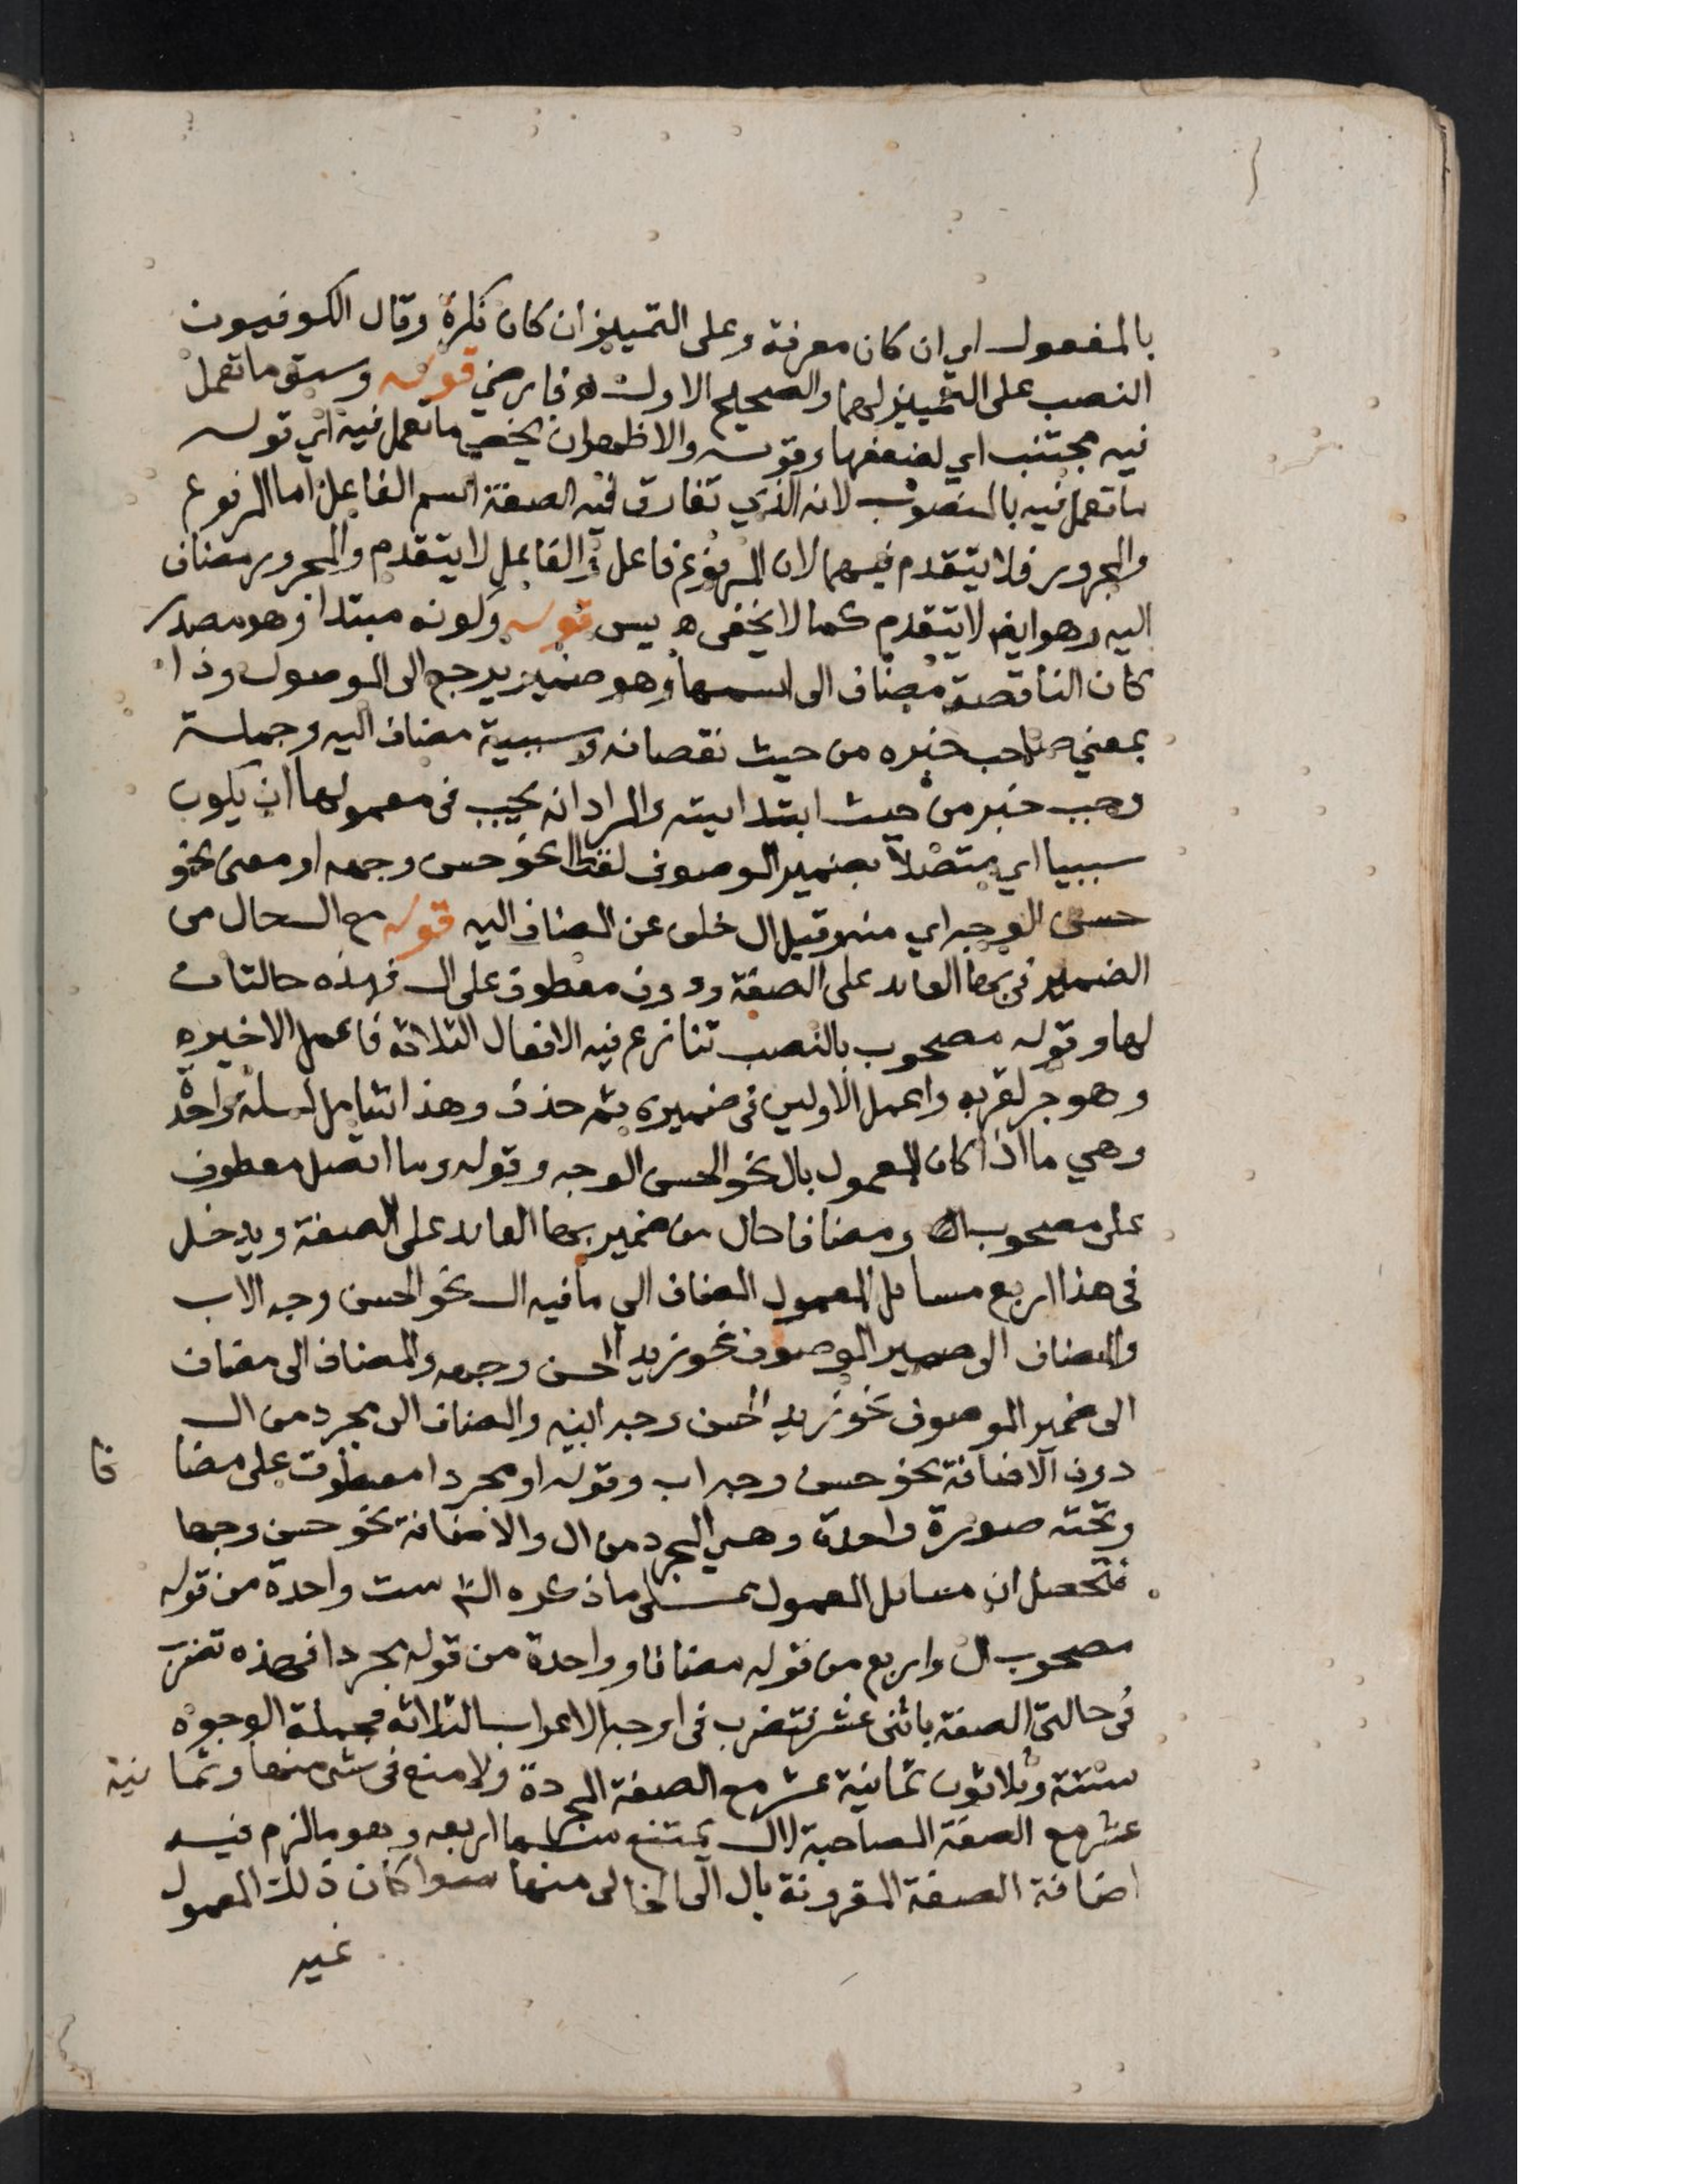 بالمفعول اي ان كان معرفة وعلى التمييز ان كان نكرة وقال الكوفيون
النصب على التمييز لهما والصحيح الاول اه فارضي قوله وسبق ما تعمل
فيه مجتنب اي لضعفها وقوله والاظهر ان يخص ما تعمل فيه اي قوله
ما تعمل فيه بالمنصوب لانه الذي تفارق فيه الصفة اسم الفاعل اما المرفوع
والمجرور فلا يتقدم فيهما لان المرفوع فاعل والفاعل لا يتقدم والمجرور مضاف
اليه وهو ايضا لا يتقدم كما لا يخفى اه يس قوله وكونه مبتدا وهو مصدر
كان الناقصة مضاف الى اسمها وهو ضمير يرجع الى الموصول وذا
بمعني صاحب خبره من حيث نقصانه وسببية مضاف اليه وجملة
وجب خبر من حيث ابتدايته والمراد انه يجب في معمولها ان يكون
سببيا اي متصلا بضمير الموصوف لفظا نحو حسن وجهه او معنى نحو
حسن الوجه اي منه وقيل ال خلف عن المضاف اليه قوله مع ال حال من
الضمير في بها العايد على الصفة ودون معطوف على ال فهذه حالتان
لها وقوله مصحوب بالنصب تنازع فيه الافعال الثلاثة فاعمل الاخير
وهو جر لقربه واعمل الاولين في ضميره ثم حذف وهذا شامل لمسلة واحدة
وهي ما اذا كان المعمول بال نحو الحسن الوجه وقوله وما اتصل معطوف
على مصحوب ال ومضافا حال من ضمير بها العايد على الصفة ويدخل
في هذا اربع مسايل المعمول المضاف الي ما فيه ال نحو الحسن وجه الاب
والمضاف الى ضمير الموصوف نحو زيد الحسن وجهه والمضاف الى مضاف
الى ضمير الموصوف نحو زيد الحسن وجه ابيه والمضاف الى مجرد من ال
دون الاضافة نحو حسن وجه اب وقوله او مجردا معطوف على مضا فا
وتحته صورة واحدة وهي المجرد من ال والاضافة نحو حسن وجها
فتحصل ان مسايل المعمول على ما ذكره الش ست واحدة من قوله
مصحوب ال واربع من قوله مضافا وواحدة من قوله مجردا فهذه تضرب
في حالتي الصفة باثنى عشر تضرب في اوجه الاعراب الثلاثة فجملة الوجوه
ستة وثلاثون ثمانية عشر مع الصفة المجردة ولا منع في شى منها وثما نية
عشر مع الصفة المصاحبة لال يمتنع منها اربعه وهو ما لزم فيه
اضافة الصفة المقرونة بال الى الخالى منها سوا كان ذلك المعمول
غير